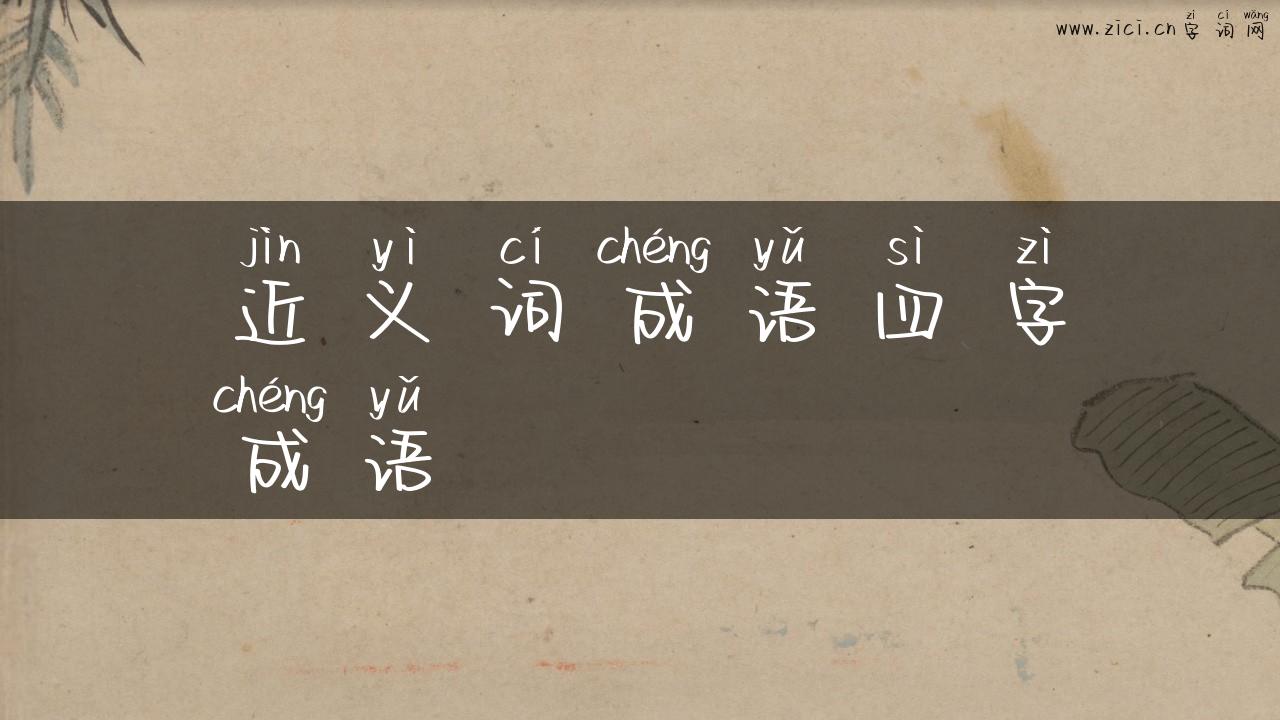 zì cí wǎng
www.zici.cn 字词网
jìn yì cí chéng yǔ sì zì
近义词成语四字
chéng yǔ
成语